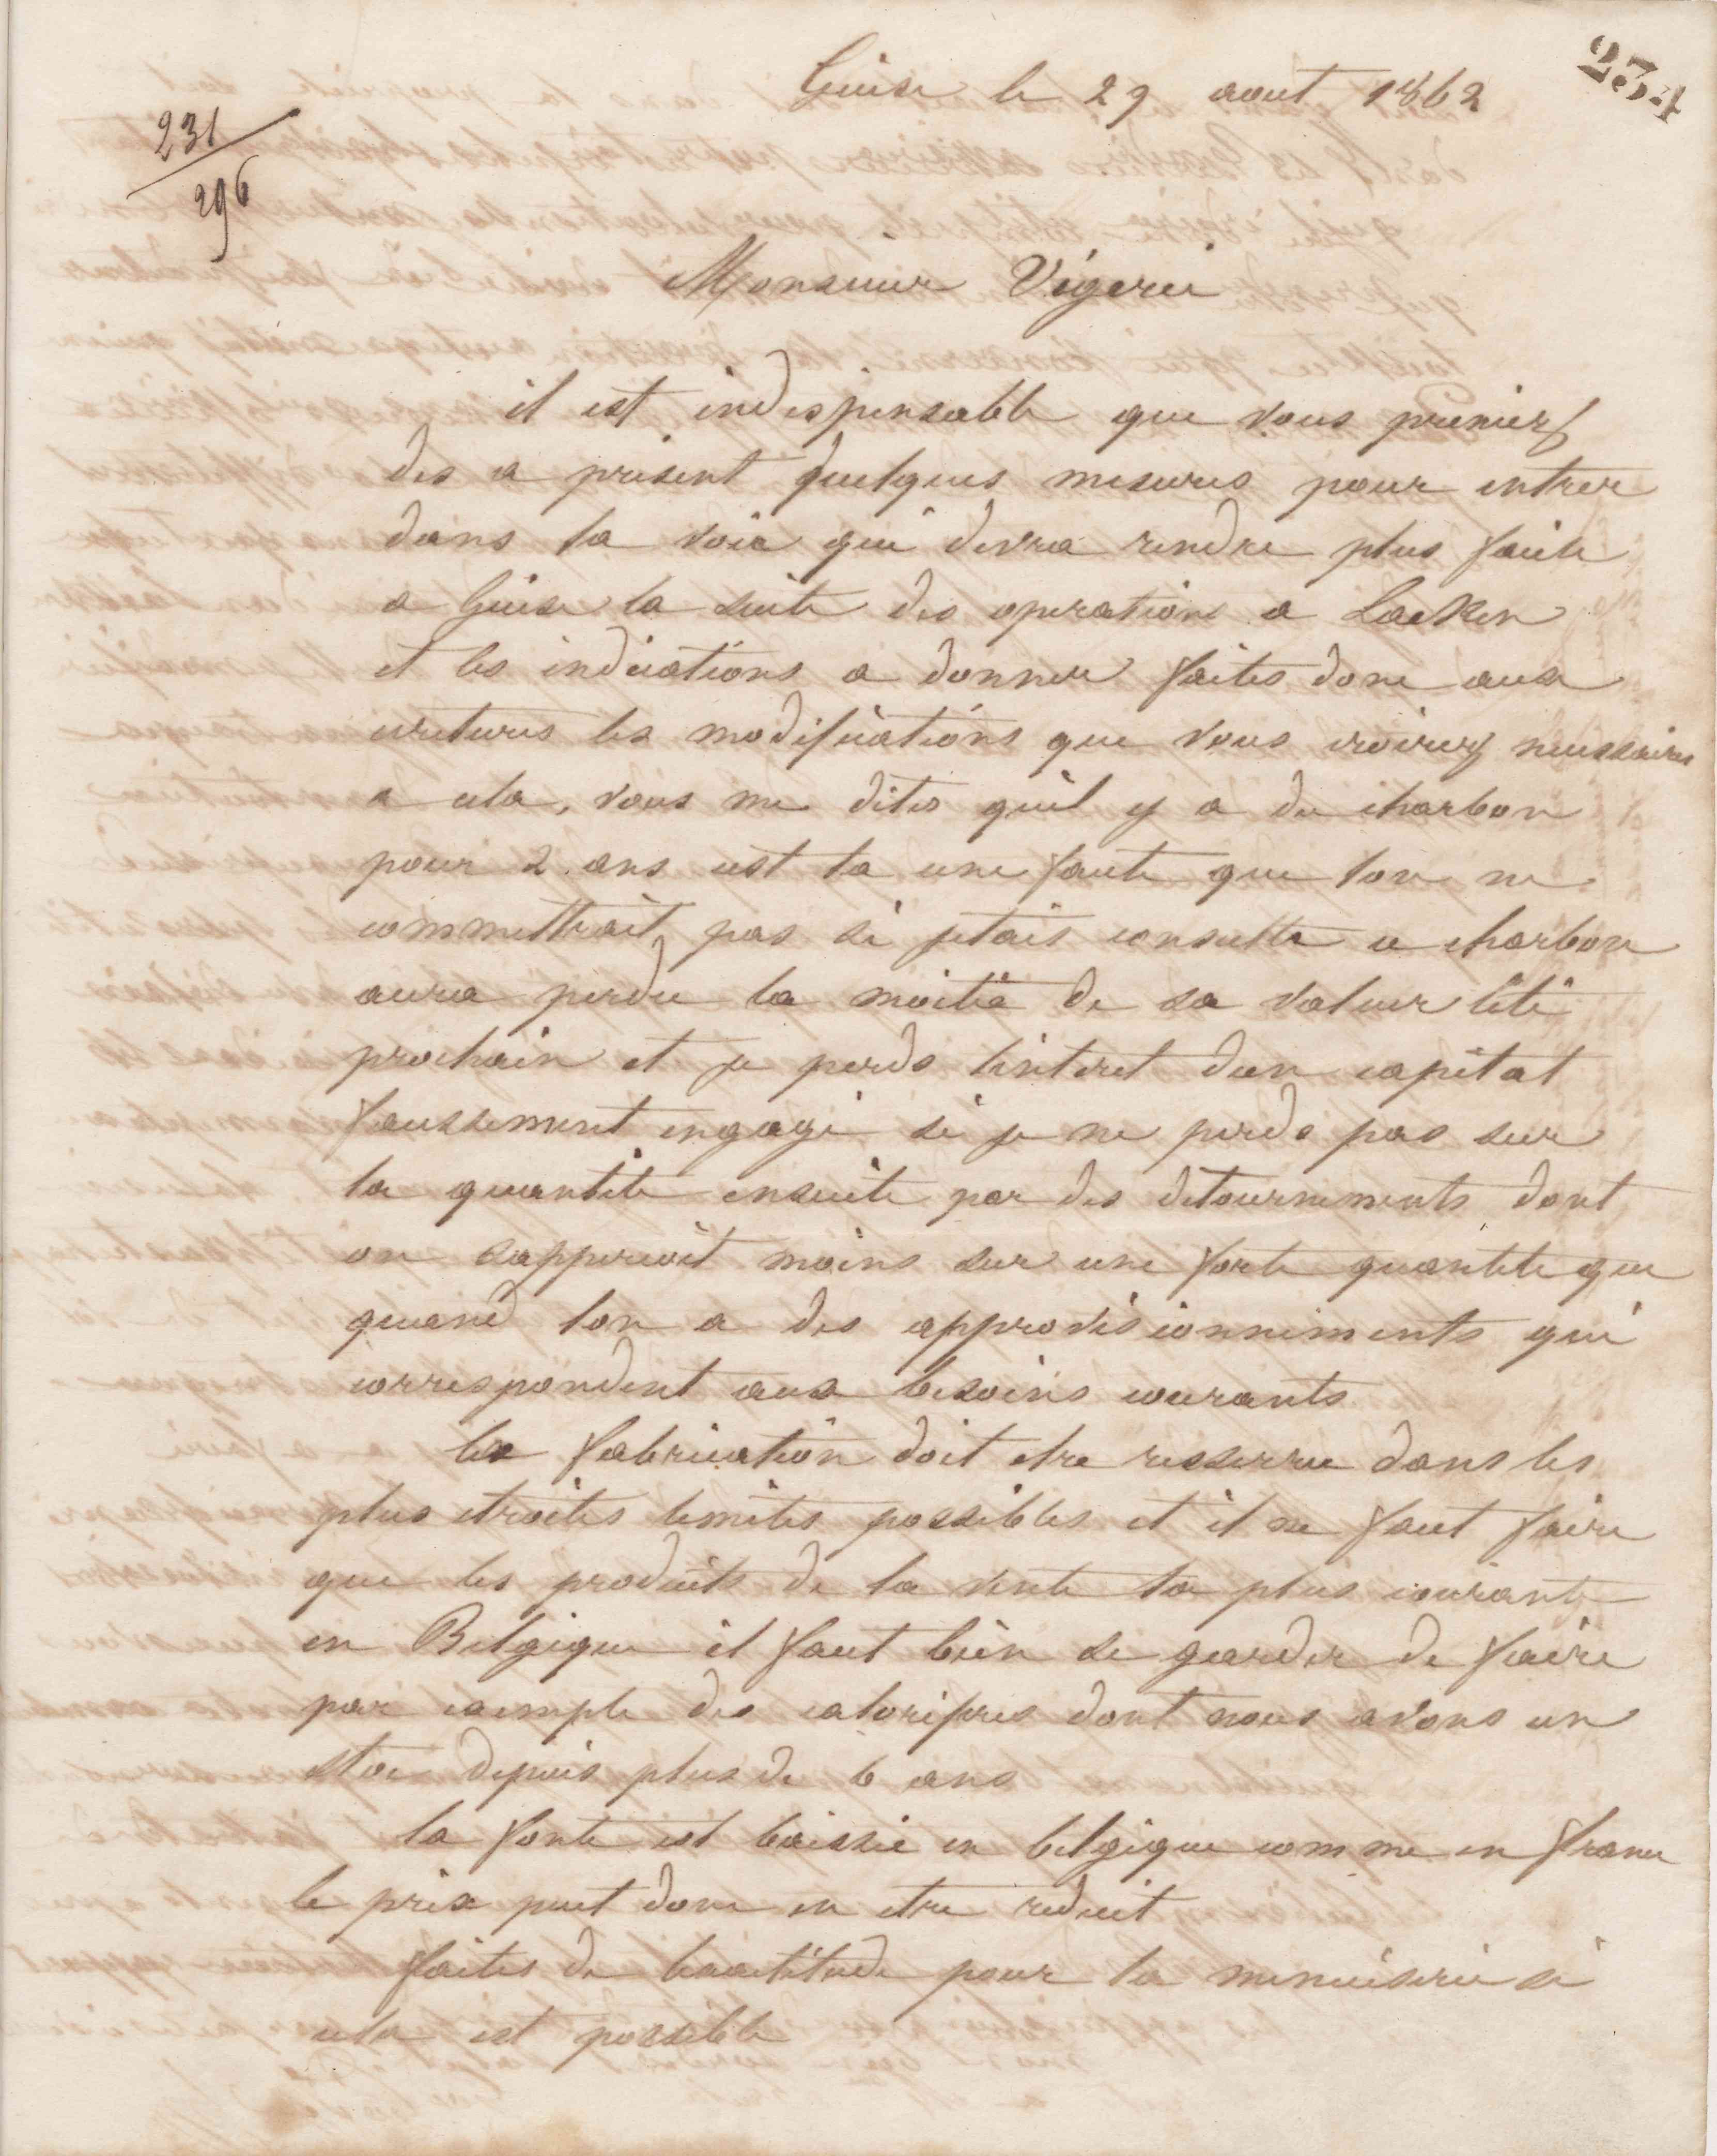 234
Guise le 29 aout 1862
231
296
Monsieur Vigerie
il est indispensable que vous preniez
des a present quelques mesures pour entrer
dans la voie qui devra rendre plus facile
a Guise la suite des operations a Laeken
et les indications a donner faites donc aux
ecritures les modifications que vous croirez necessaires
a cela, vous me dites quil y a du charbon
pour 2 ans cest la une faute que lon ne
commettrait pas si jetais consulte ce charbon
aura perdu la moitié de sa valeur lété
prochain et je perds linteret dun capital
faussement engagé si je ne perds pas sur
la quantité ensuite par des detournements dont
on sapperçoit moins sur une forte quantite que
quand lon a des approvisionnements qui
correspondent aux besoins courants
la fabrication doit etre resserree dans les
plus etroites limites possibles et il ne faut faire
que les produits de la vente la plus courante
en Belgique il faut bien se garder de faire
par exemple des caloriferes dont nous avons un
stoc depuis plus de 6 ans
la fonte est baissée en belgique comme en france
le prix peut donc en etre reduit
faites de lexactitude pour la menuiserie si
cela est possible